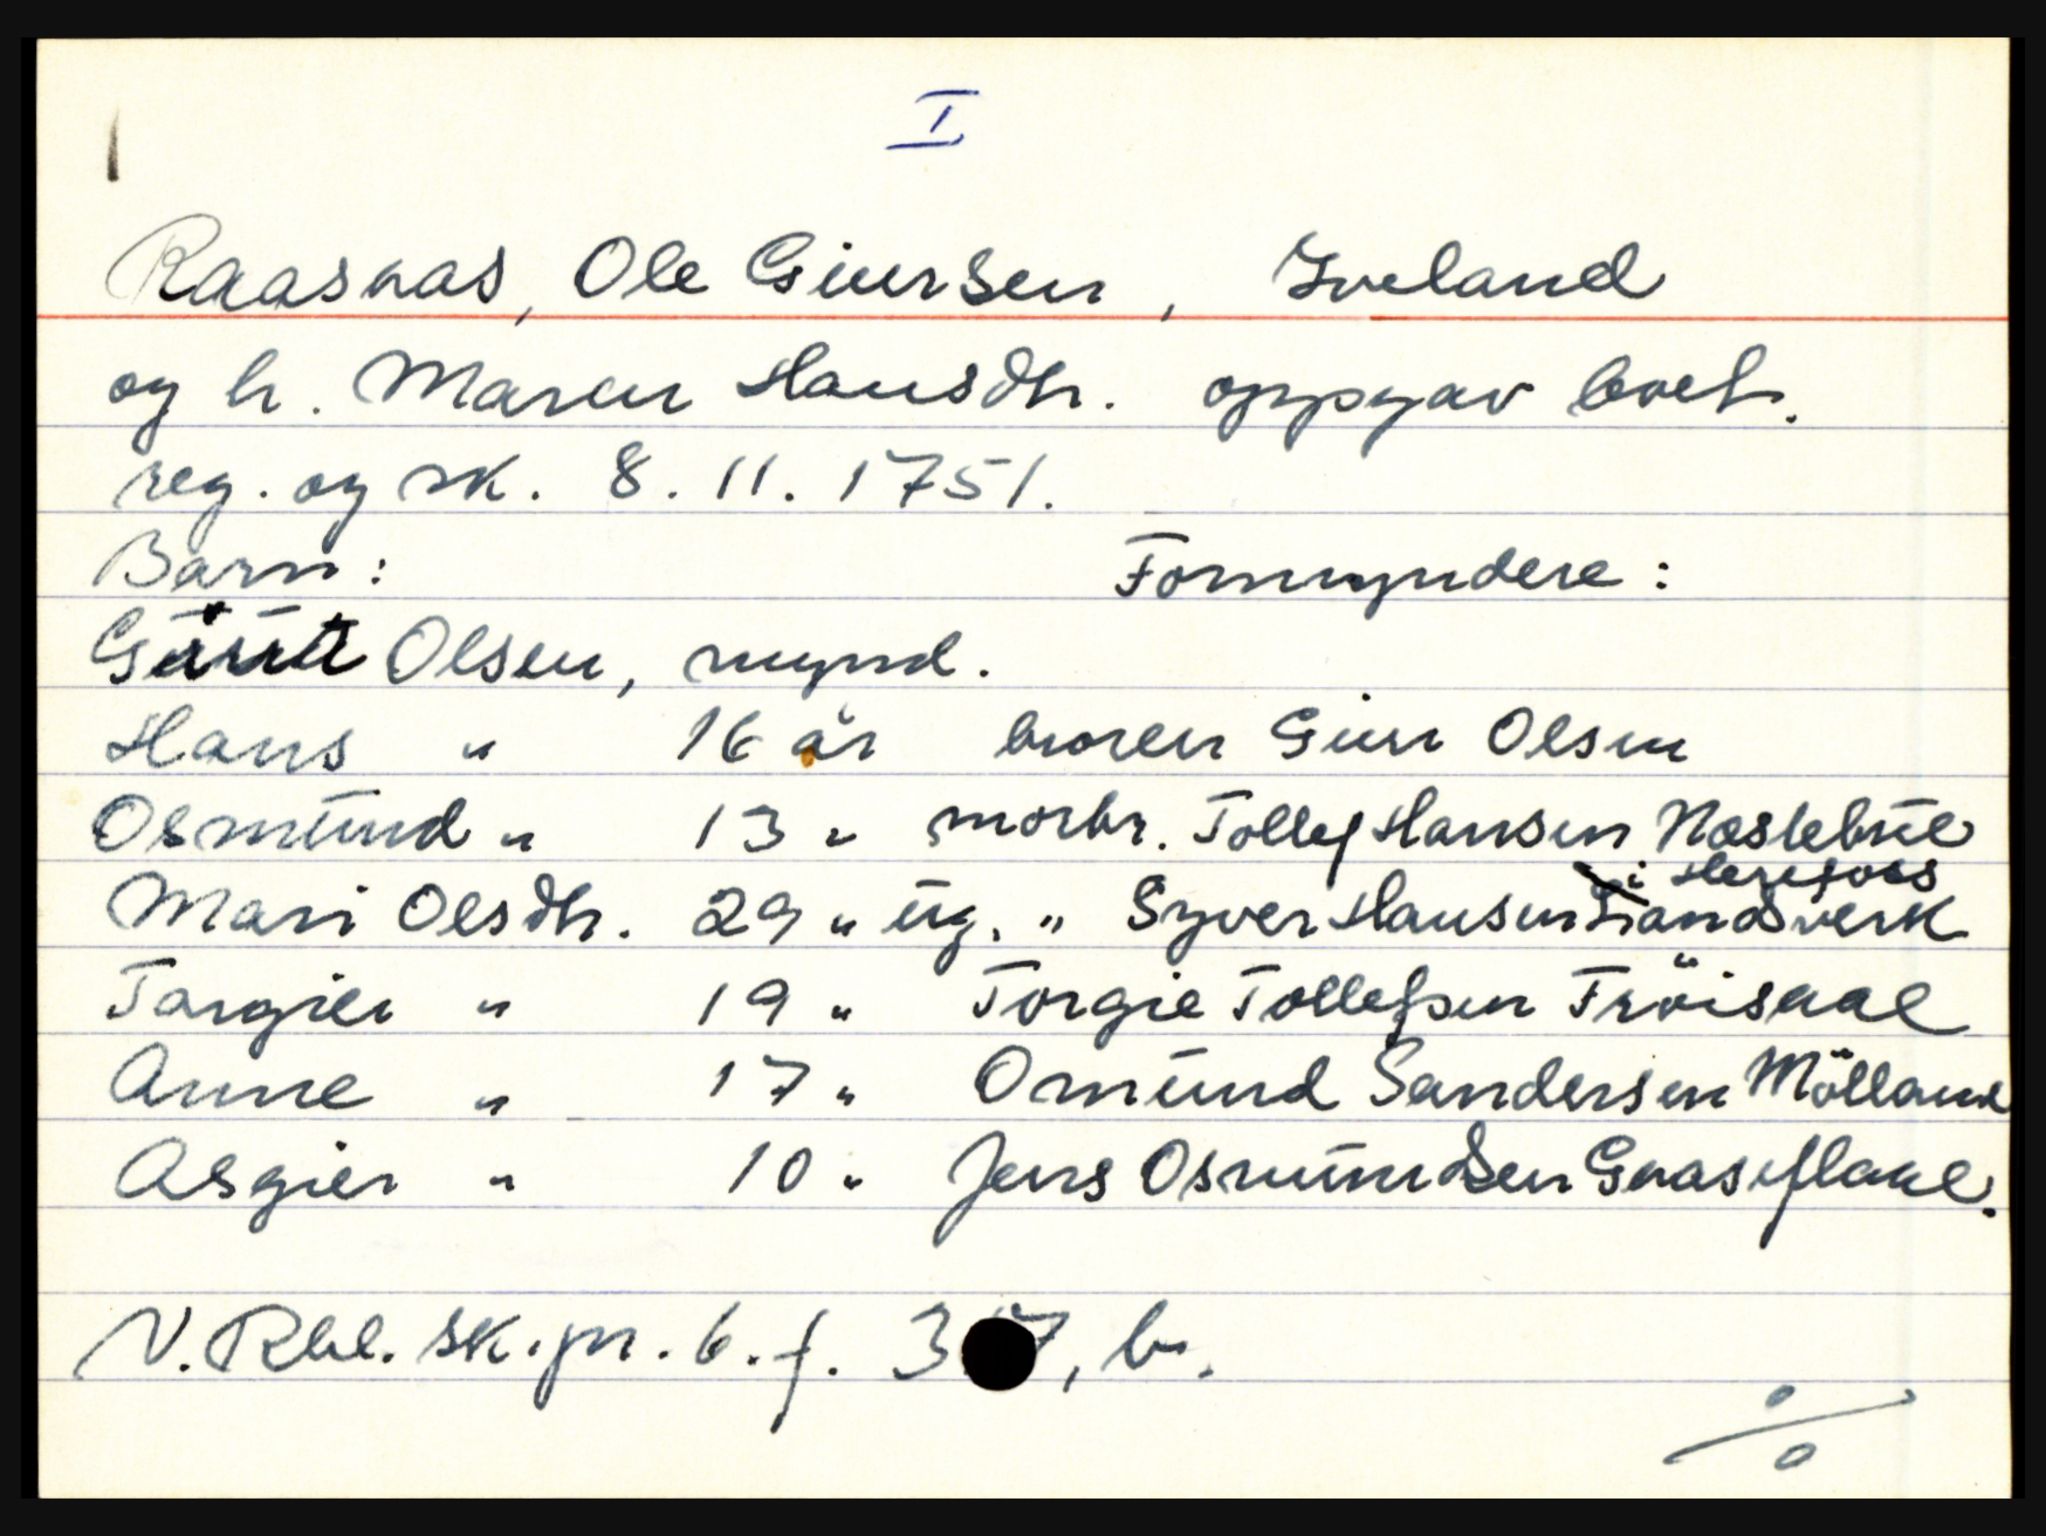 I
Raasaas, Ole Giursen, Iveland
og h. Maren Hansdtr. oppgav boet.
reg. og sk. 8. 11. 1751.
Barn: Formyndere:
Olsen, mynd.
Hans " 16 år broren Giur Olsen
Osmund " 13 " morbr. Tollef Hansen Naslebue
i Herefoss
Mari Olsdtr. 29 " ug. " Syver Hansen Landsverk
Targier " 19 " Torgie Tollefsen Fröisaae
Anne " 17 " Omund Sandersen Mölland
Asgier " 10 " Jens Osmundsen Gaaseflaae.
N. Rbl. sk.pr. 6. f. 3 7, b.
%